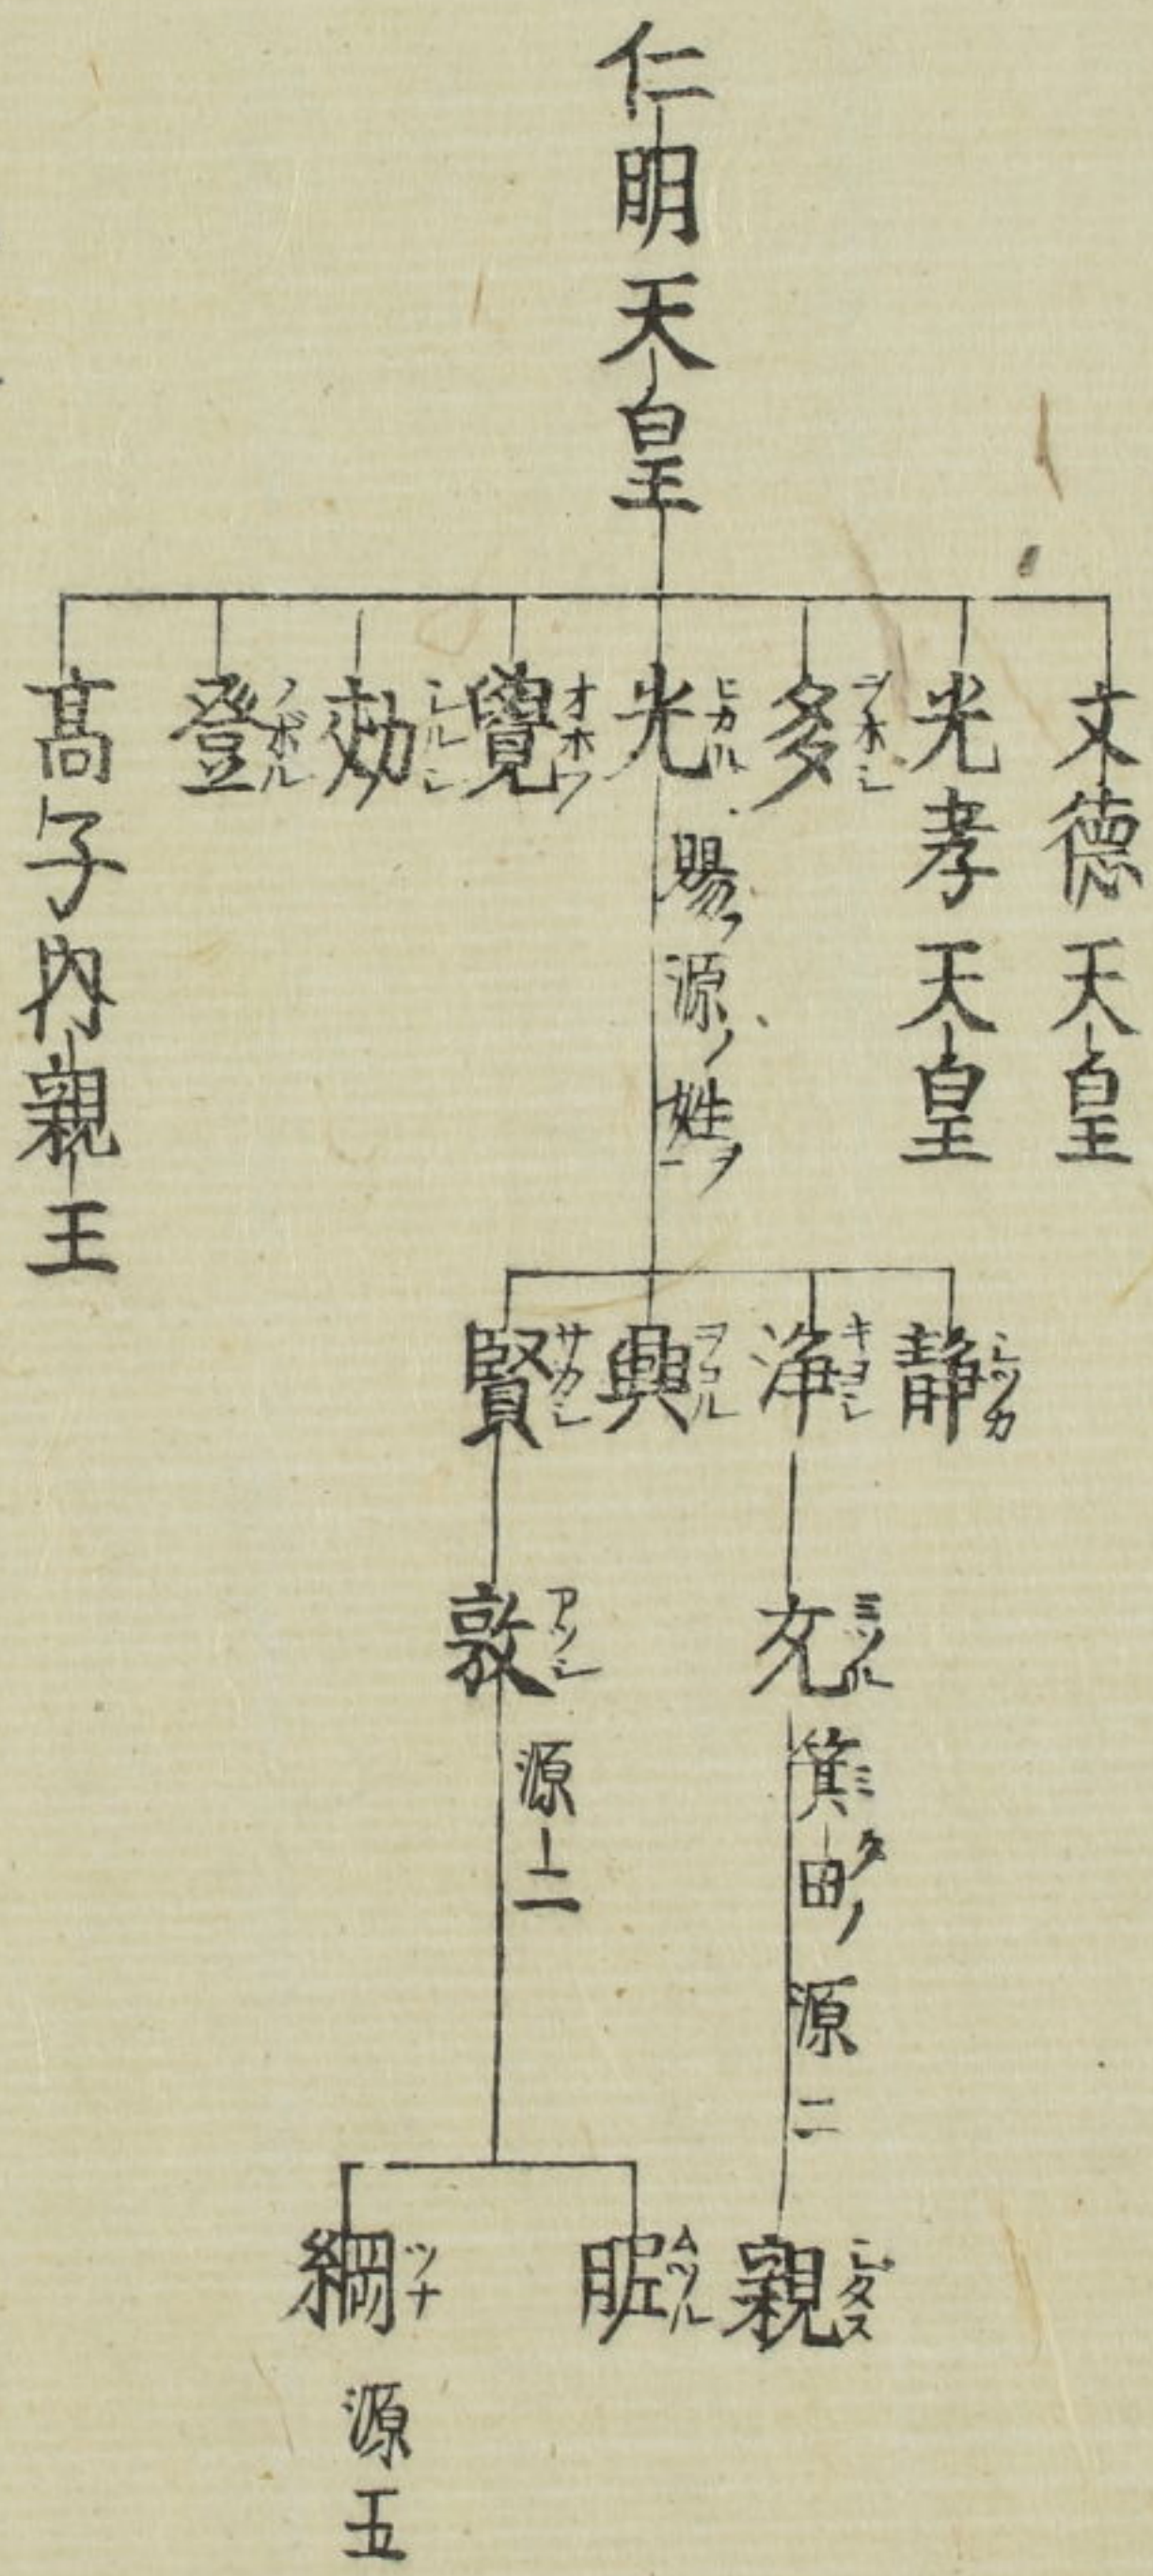 仁明天皇
文德天皇
光孝天皇
多
光 ヒカル 賜フ源ノ姓ヲ
覺 オホフ
効 シルシ
登 ノボル
髙子內親王
静 シツカ
淨 キヨシ
興 ヲコル
賢 サカシ
充 ミツル 箕田ノ源二
敦 アツシ 源二
親 シタス
ムツル
綱 ツナ 源五